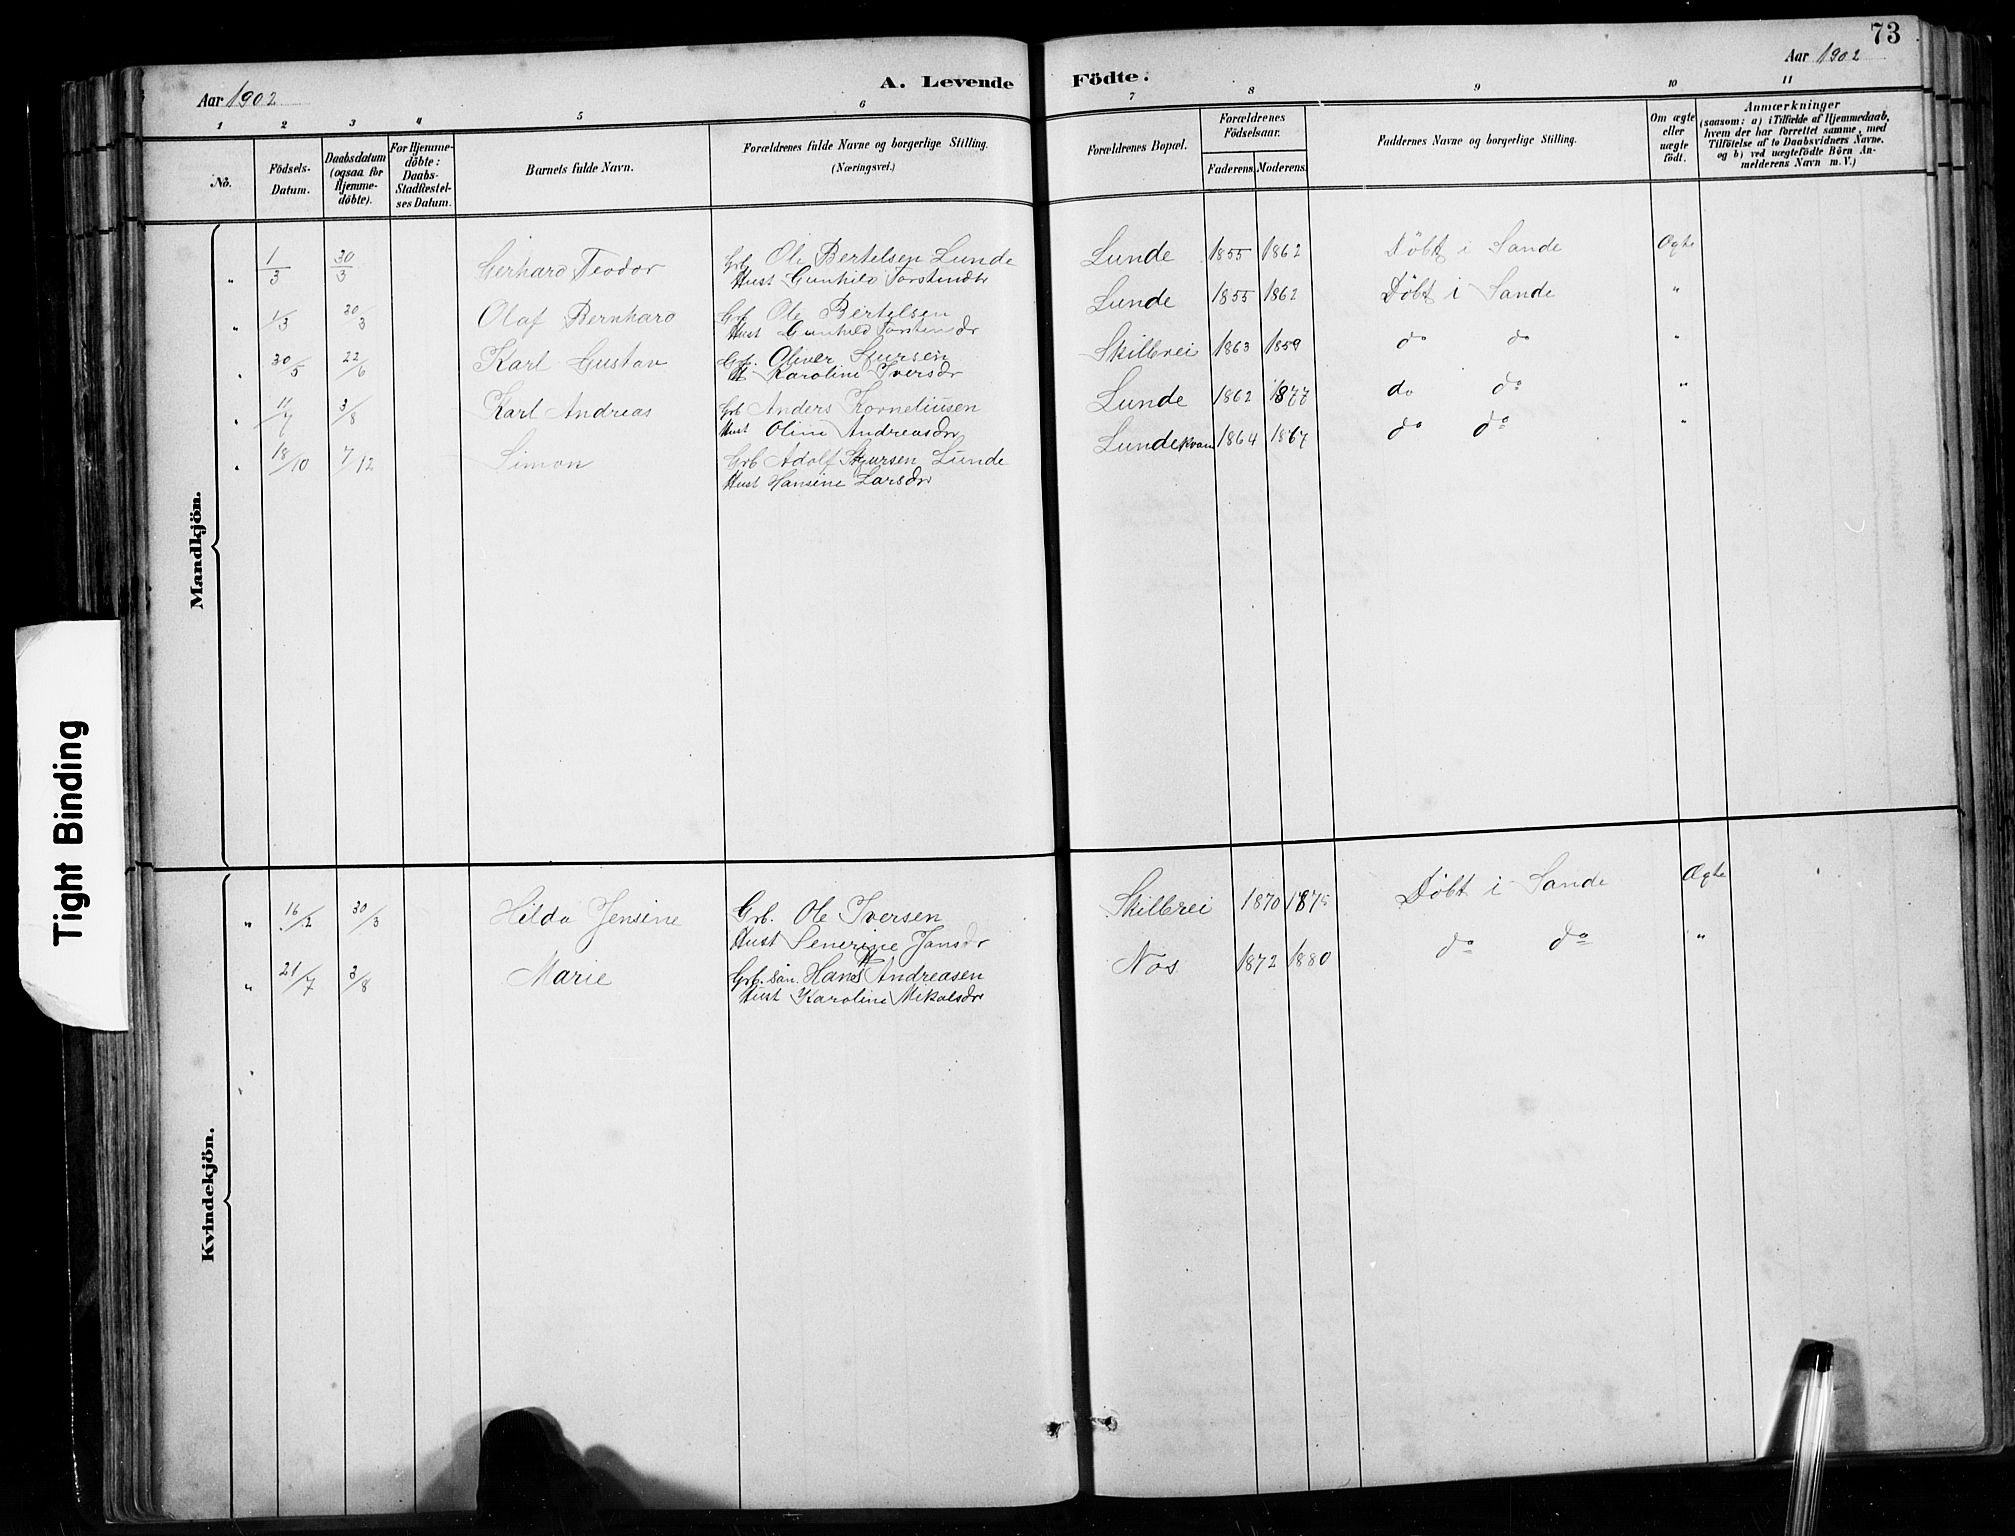 73
Aar 1902
A. Levende Födte.
Aar 1902
1 2 3 4 5 6 7 8 9 10 11
No.
Födsels-Datum.
Daabsdatum (ogsaa for Hjemme-döbte).
For Hjemme-döbte: Daabs-Stadfæstel-ses Datum.
Barnets fulde Navn.
Forældrenes fulde Navne og borgerlige Stilling.
(Næringsvei.)
Forældrenes Bopæl.
Forældrenes Födselsaar.
Faderens. Moderens.
Faddernes Navne og borgerlige Stilling.
Om ægte eller uægte födt.
Anmærkninger
(saasom: a) i Tilfælde af Hjemmedaab,
hvem der har forrettet samme, med
Tilföielse af to Daabsvidners Navne,
og b) ved uægtefödte Börn An-
melderens Navn m. V.)
Mandkjön.
" 1/3 30/3 Gerhard Teodor Grb. Ole Bertelsen Lunde Lunde 1855 1862 Döbt i Sande Ægte
Hust Gunhild Torstendtr
" 1/3 30/3 Olaf Bernhard Grb Ole Bertelsen Lunde 1855 1862 Döbt i Sande "
Hust Gunhild Torstensdr
" 30/5 22/6 Karl Gustav Grb. Oliver Sjursen Skilbrei 1863 1859 do do "
H Karoline Iversdr
" 11/7 3/8 Karl Andreas Grb Anders Korneliusen Lunde 1862 1877 do do "
Hust Oline Andreasdr
" 18/10 7/12 Simon Grb Adolf Sjursen Lunde Lundekvam 1864 1867 do do "
Hust Hansine Larsdr
Kvindekjön.
" 16/2 30/3 Hilda Jensine Grb. Ole Iversen Skilbrei 1870 1875 Döbt i Sande Ægte
Hust Senerine Jansdr
" 21/7 3/8 Marie Grb. sön. Hans Andreasen Nos 1872 1880 do do "
Hust Karoline Mikalsdr
Tight Binding